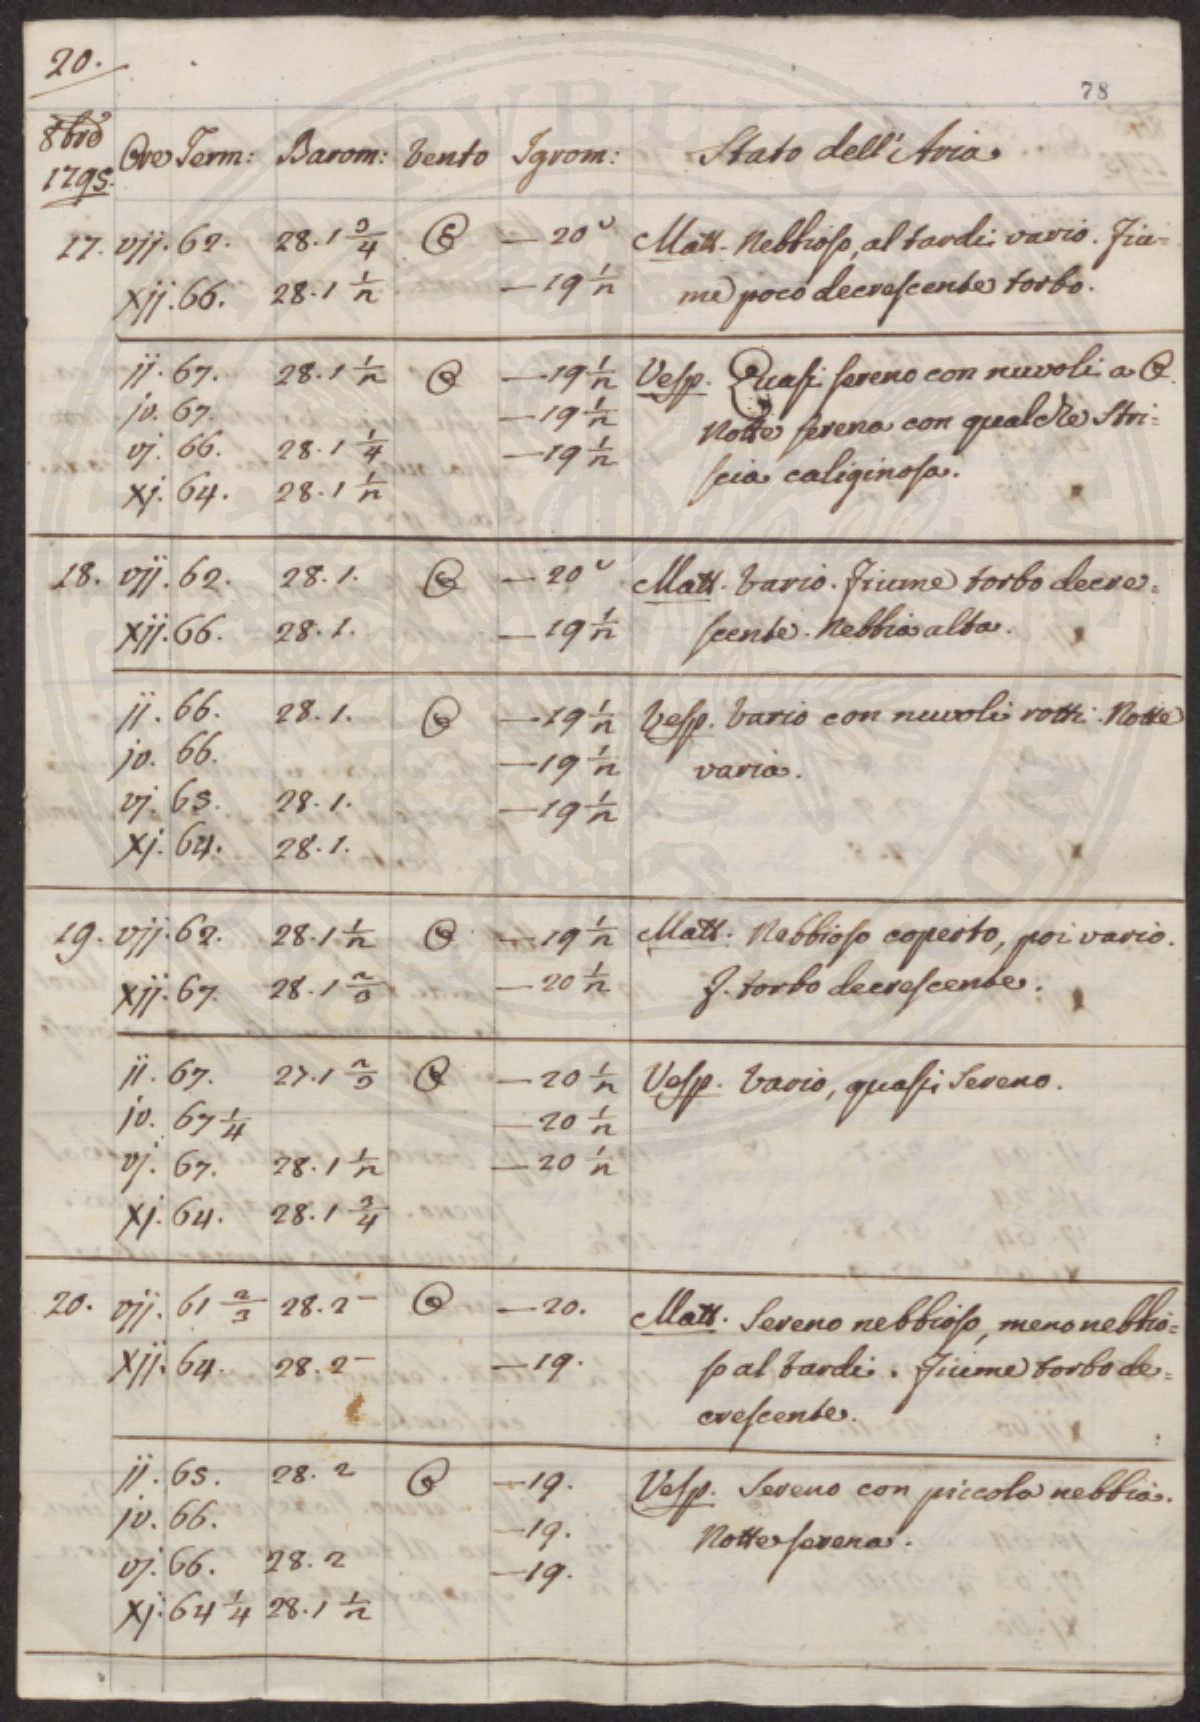 20.
78
8bre 1795. Ore Term: Barom: Vento Igrom: Stato dell'Aria
17. vij. 62. 28.1 3/4 — 20 Matt. Nebbioso, al tardi vario. Fiu=
xij. 66. 28.1 1/2 — 19 1/2 me poco decrescente torbo.
ij. 67. 28.1 1/2 — 19 1/2 Vesp. Quasi sereno con nuvoli a
iv. 67. — 19 1/2 Notte serena con qualche Stri=
vj. 66. 28.1 1/4 — 19 1/2
xj. 64. 28.1 1/2 scia caliginosa.
18. vij. 62. 28.1. — 20 Matt. Vario. Fiume torbo decre=
xij. 66. 28.1. — 19 1/2 scente. Nebbia alta.
ij. 66. 28.1. — 19 1/2 Vesp. Vario con nuvoli rotti. Notte
iv. 66. — 19 1/2 varia.
vj. 65. 28.1. — 19 1/2
xj. 64. 28.1.
19. vij. 62. 28.1 1/2 — 19 1/2 Matt. Nebbioso coperto, poi vario.
xij. 67. 28.1 2/3 — 20 1/2 F. torbo decrescente.
ij. 67. 27.1 2/3 — 20 1/2 Vesp. Vario, quasi Sereno.
iv. 67 1/4 — 20 1/2
vj. 67. 28.1 1/2 — 20 1/2
xj. 64. 28.1 3/4
20. vij. 61 2/3 28.2 – — 20. Matt. Sereno nebbioso, meno nebbio=
xij. 64. 28.2 – — 19. so al tardi. Fiume torbo de=
crescente.
ij. 65. 28.2 — 19. Vesp. Sereno con piccola nebbia.
iv. 66. — 19. Notte serena.
vj. 66. 28.2 — 19.
xj. 64 1/4 28.1 1/2